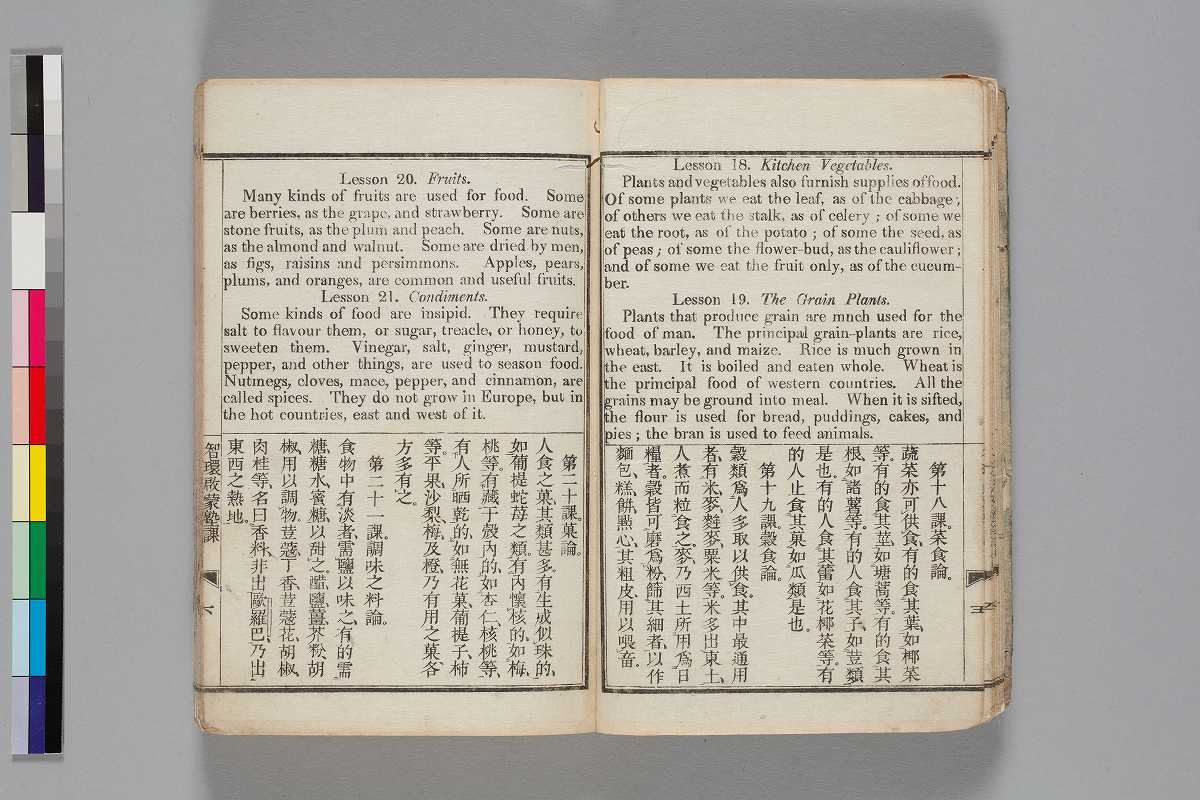 Lesson 18. Kitchen Vegetables.
Plants and vegetables also furnish supplies offood.
Of some plants we eat the leaf, as of the cabbage;
of others we eat the stalk, as of celery ; of some we
eat the root, as of the potato ; of some the seed, as
of peas ; of some the flower-bud, as the cauliflower ;
and of some we eat the fruit only, as of the cucum-
ber.
Lesson 19. The Grain Plants.
Plants that produce grain are mnch used for the
food of man. The principal grain-plants are rice,
wheat, barley, and maize. Rice is much grown in
the east. It is boiled and eaten whole. Wheat is
the principal food of western countries. All the
grains may be ground into meal. When it is sifted,
the flour is used for bread, puddings, cakes, and
pies ; the bran is used to feed animals.
第十八課。菜食論。
蔬菜亦可供食、有的食其葉、如椰菜
等。有的食其莖、如塘蒿等。有的食其
根、如諸薯等。有的人食其子、如荳類
是也。有的人食其蕾、如花椰菜等。有
的人止食其菓、如瓜類是也。
第十九課。穀食論。
穀類爲人多取以供食、其中最通用
者、有米、麥、麰麥、粟米等。米多出東土、
人煮而粒食之。麥、乃西土所用爲日
糧者。穀皆可磨爲粉、篩其細者、以作
麵包、糕、餅、點心、其粗皮、用以喂畜。
Lesson 20. Fruits.
Many kinds of fruits are used for food. Some
are berries, as the grape, and strawberry. Some are
stone fruits, as the plum and peach. Some are nuts,
as the almond and walnut. Some are dried by men,
as figs, raisins and persimmons. Apples, pears,
plums, and oranges, are common and useful fruits.
Lesson 21. Condiments.
Some kinds of food are insipid. They require
salt to flavour them, or sugar, treacle, or honey, to
sweeten them. Vinegar, salt, ginger, mustard,
pepper, and other things, are used to season food.
Nutmegs, cloves, mace, pepper, and cinnamon, are
called spices. They do not grow in Europe, but in
the hot countries, east and west of it.
第二十課。菓論。
人食之菓、其類甚多、有生成似珠的、
如葡提蛇苺之類、有內懷核的、如梅、
桃等。有藏于殼內的、如杏仁、核桃等、
有人所晒乾的、如無花菓、葡提子、柿
等。平果、沙梨、梅、及橙、乃有用之菓、各
方多有之。
第二十一課。調味之料論。
食物中有淡者、需鹽以味之、有的需
糖、糖水、蜜糖、以甜之。醋、鹽、薑、芥末、胡
椒、用以調物。荳蔻、丁香、荳蔻花、胡椒、
肉桂等、名曰香料、非出歐羅巴、乃出
東西之熱地。
智環啟蒙塾課
六